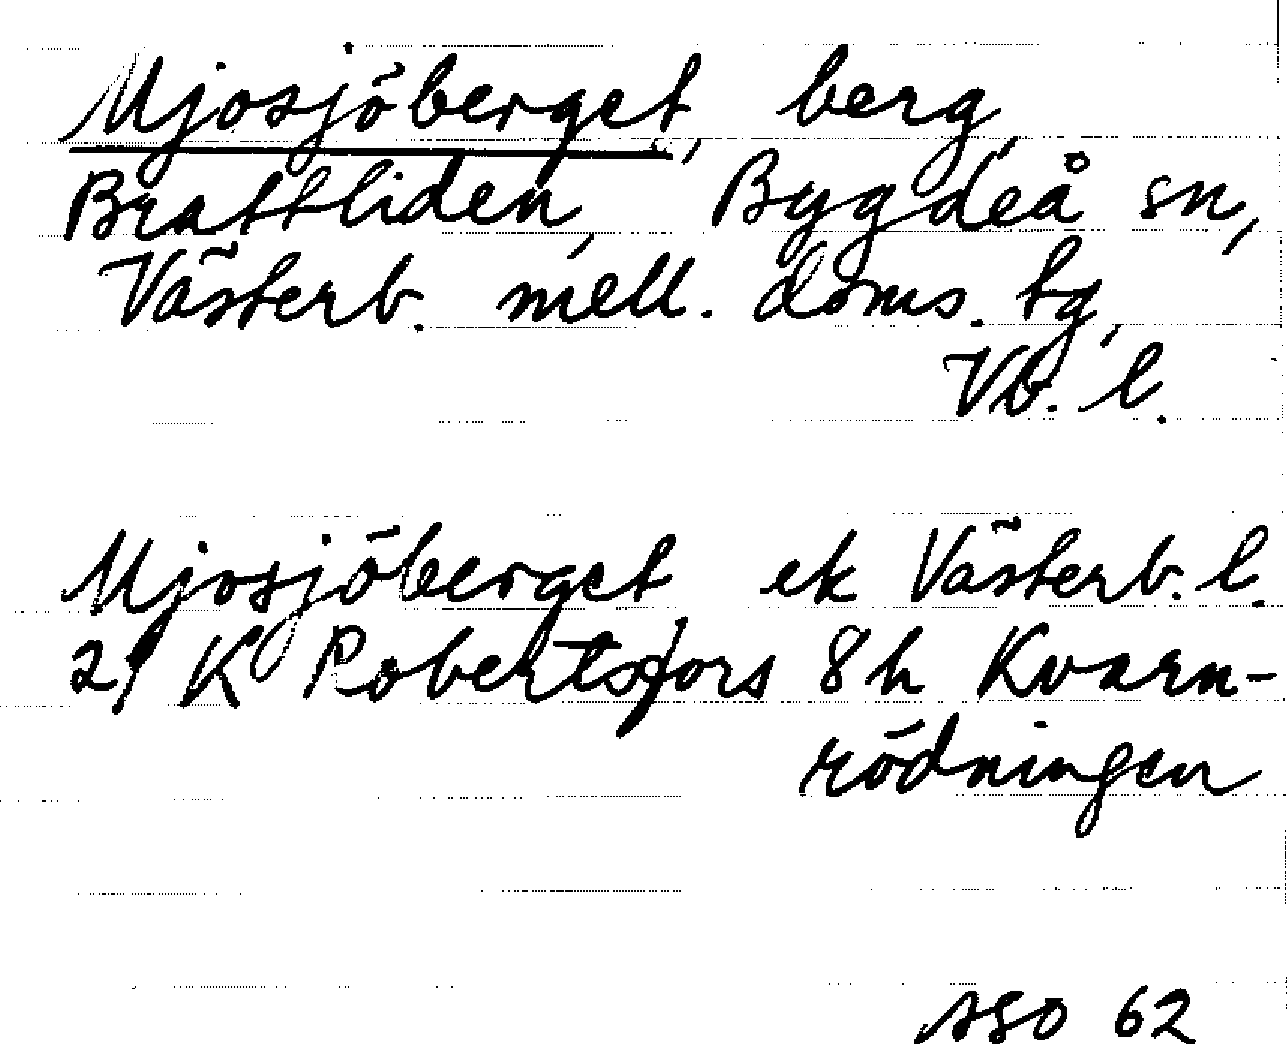 Mjosjöberget, berg,
Brattliden, Bygdeå sn,
Västerb. mell. doms. tg,
Vb. l.
Mjosjöberget ek Västerb. l.
21 K Robertsfors 8h Kvarn-
rödningen
ASO 62